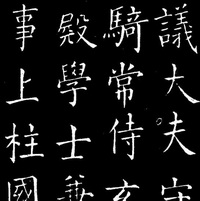 議大夫守
騎常侍玄
殿學士兼
事上柱國